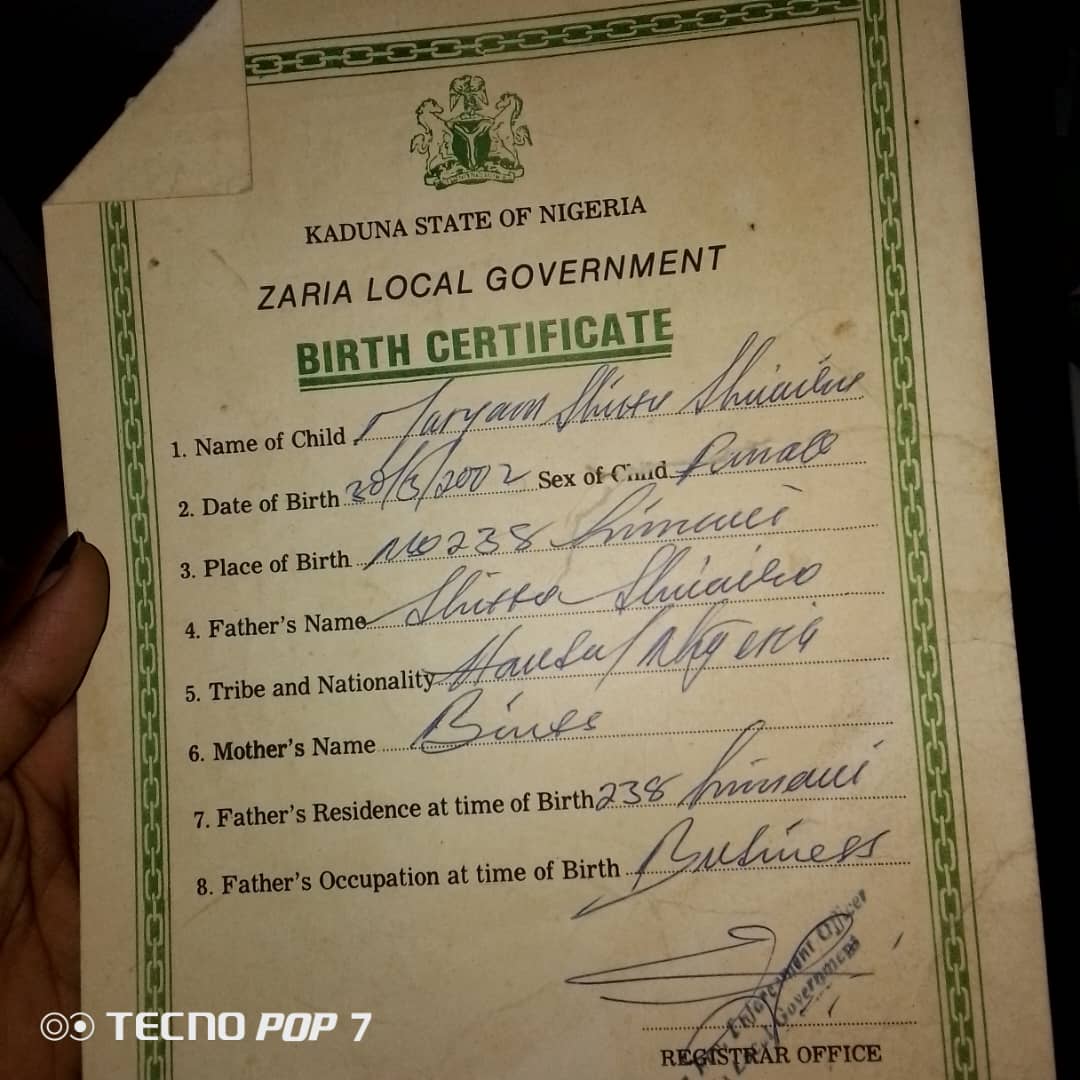 KADUNA STATE OF NIGERIA
ZARIA LOCAL GOVERNMENT
BIRTH CERTIFICATE
1. Name of Child Maryam Shittu Shuaibu
2. Date of Birth /5/2002 Sex of Child Female
3. Place of Birth No 238
4. Father's Name Shittu Shuaibu
5. Tribe and Nationality Hausa/Nigeria
6. Mother's Name
7. Father's Residence at time of Birth 238
8. Father's Occupation at time of Birth Business
Enforcement Officer
Government
REGISTRAR OFFICE
TECNO POP 7